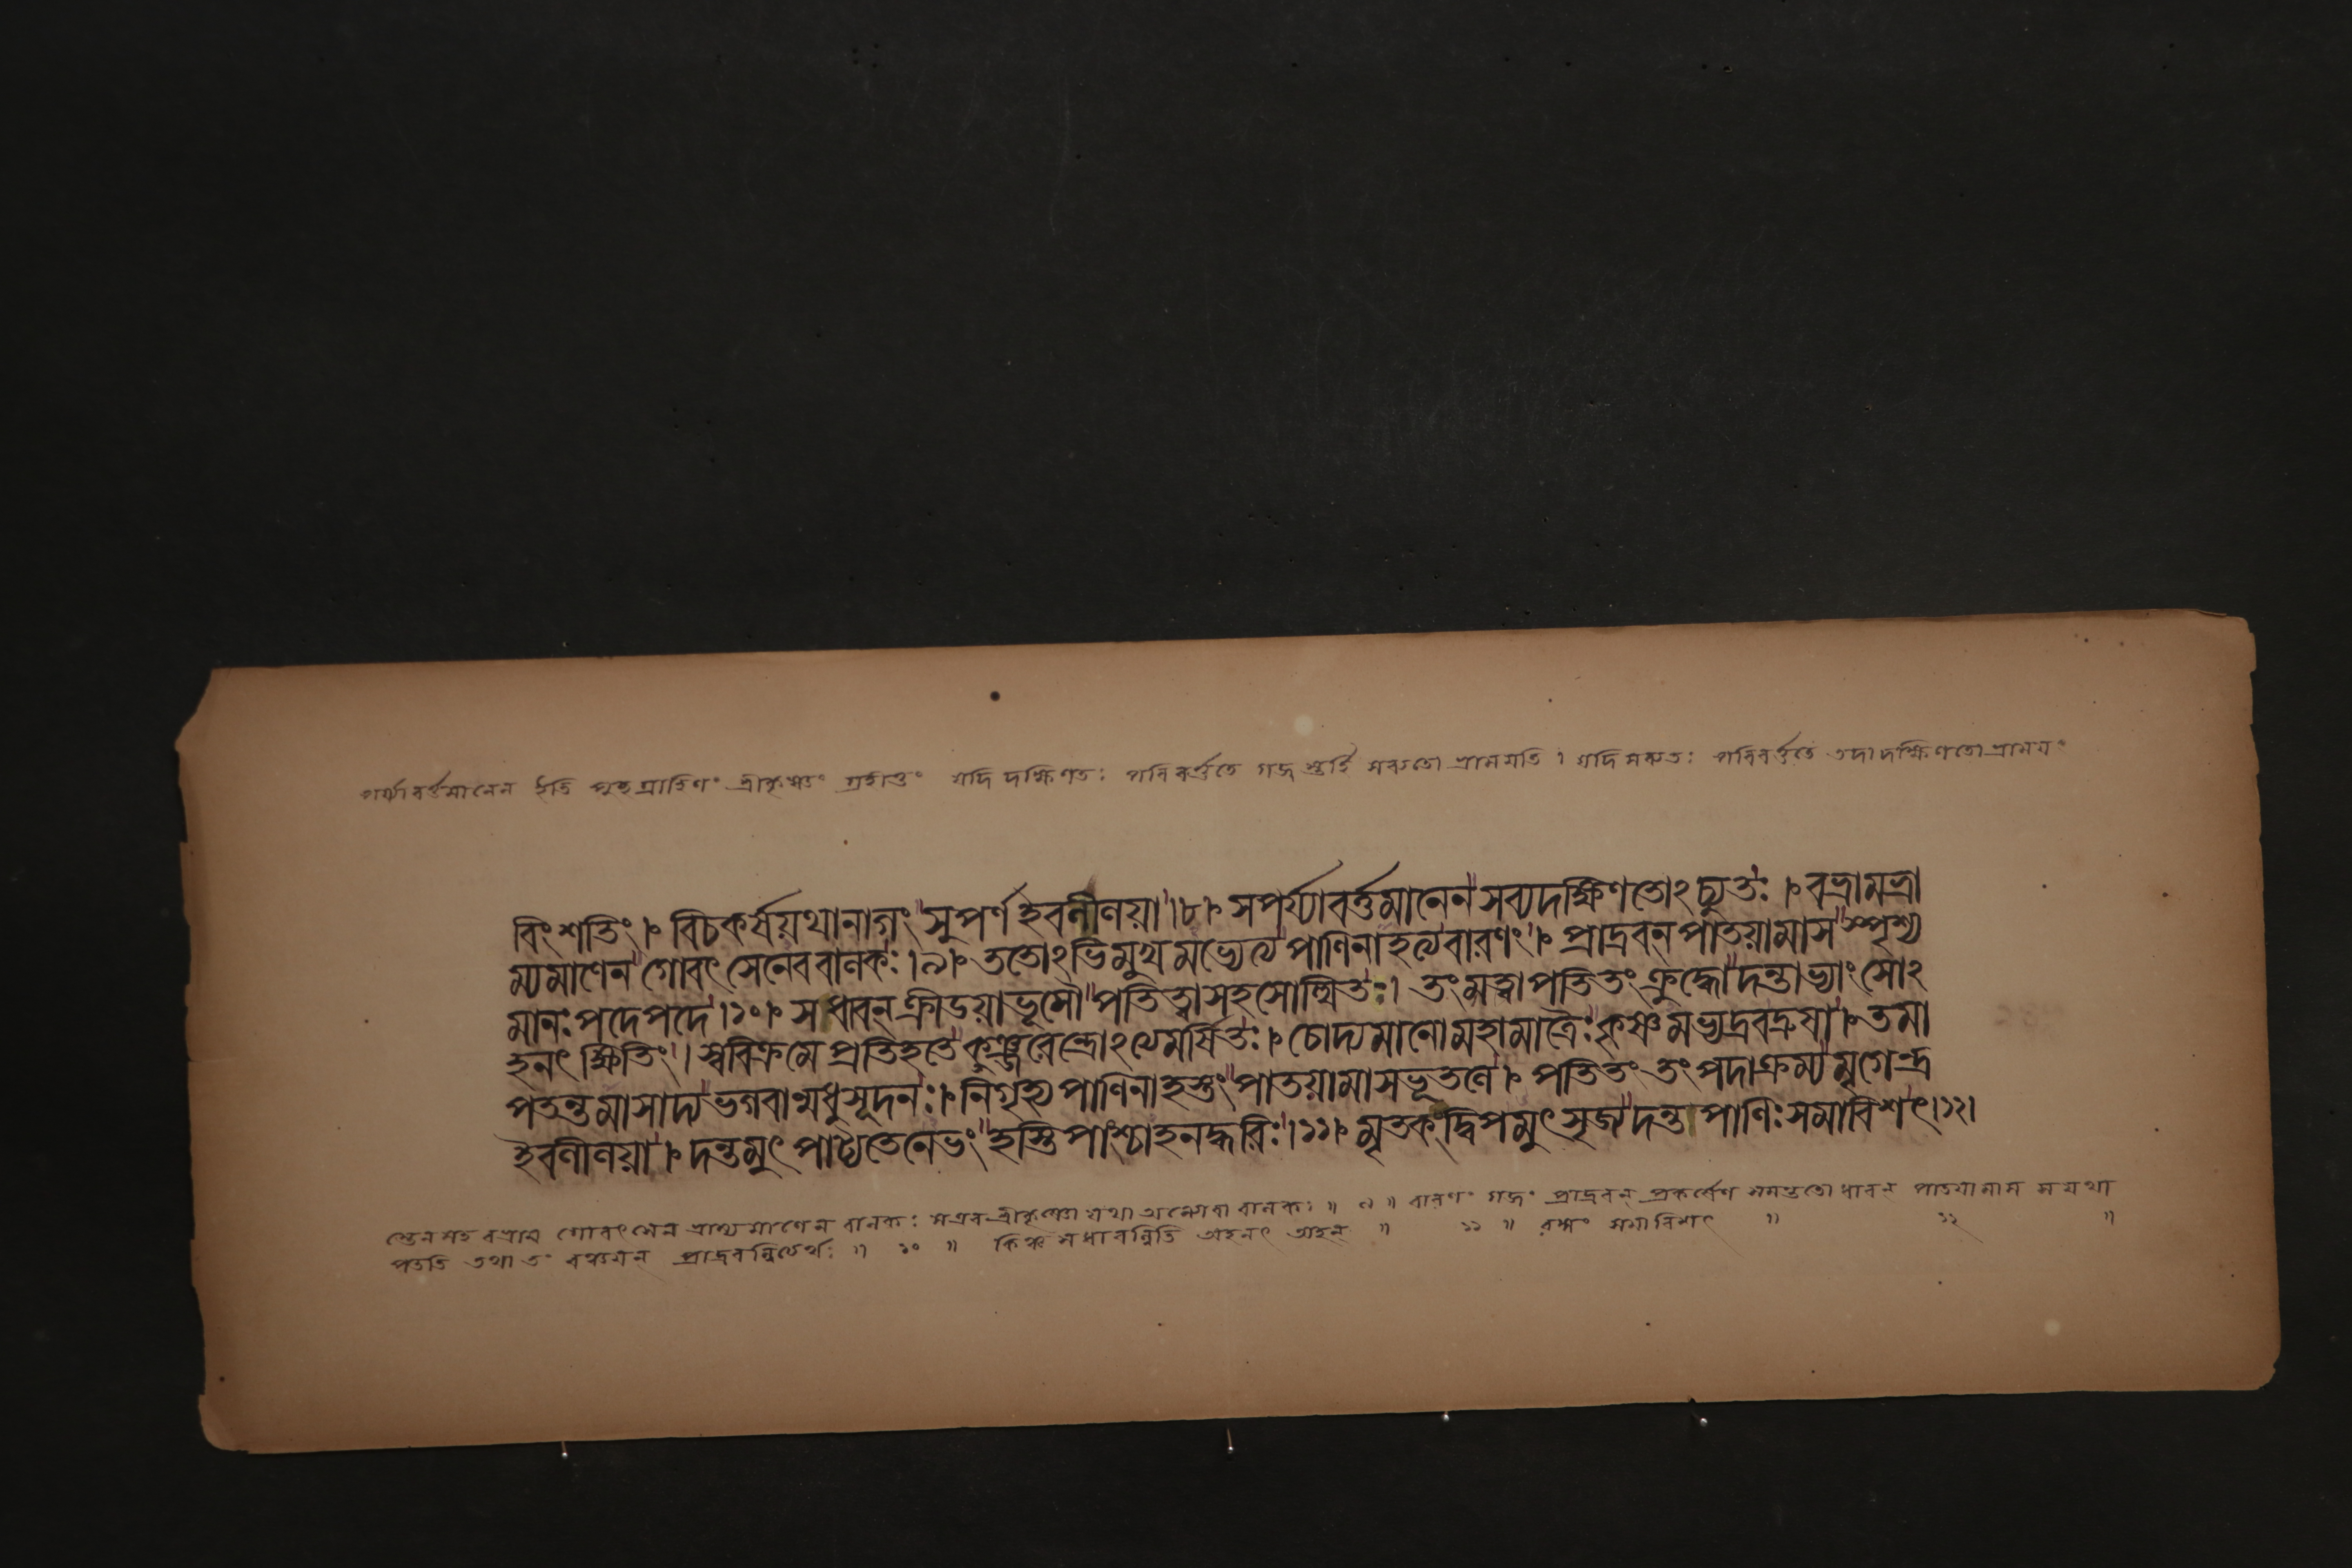 পর্য্যাবর্ত্তমানেন ইতি পুচ্ছগ্রাহিণং শ্রীকৃষ্ণং গ্রহীতুং যদি দক্ষিণতঃ পরিবর্ত্ততে গজ স্তর্হি সব্যতো ভ্রাময়তি । যদি সব্যতঃ পরিবর্ত্ততে তদা দক্ষিণতো ভ্রাময়ং
বিংশতিং । বিচকর্ষযথানাগং সুপর্ণ ইবলীলয়া ।৮। সপর্য্যাবর্ত্তমানেন সব্যদক্ষিণতোঽচ্যুতঃ । বভ্রামভ্রা
ম্যমাণেন গোবৎসেনেববালকঃ ।৯। ততোঽভিমুখমভ্যেত্য পাণিনাহত্যবারণং । প্রাদ্রবন্ পাতয়ামাস স্পৃশ্য
মানঃ পদেপদে ।১০। স ধাবন্ ক্রীডয়াভূমৌ পতিত্বাসহসোত্থিতঃ । তংমত্বাপতিতং ক্রুদ্ধো দন্তাভ্যাং সোঽ
হনৎ ক্ষিতিং । স্ববিক্রমে প্রতিহতে কুঞ্জরেন্দ্রোঽত্যমর্ষিতঃ । চোদ্যমানোমহামাত্রৈঃ কৃষ্ণমভ্যদ্রবদ্রুষা । তমা
পতন্তমাসাদ্য ভগবান্মধুসূদনঃ । নিগৃহ্য পাণিনাহস্তং পাতয়ামাসভূতলে । পতিতং তং পদাক্রম্য মৃগেন্দ্র
ইবলীলয়া । দন্তমুৎপাট্যতেনেভং হস্তিপাংশ্চাহনদ্ধরিঃ ।১১। মৃতকংদ্বিপমুৎসৃজ্য দন্তপাণিঃ সমাবিশৎ ।১২।
স্তেনসহ বভ্রাম গোবৎসেন ভ্রাম্যমাণেন বালকঃ সএবশ্রীকৃষ্ণো যথা অন্যোবা বালকঃ ॥ ৯ ॥ বারণং গজং প্রাদ্রবন্ প্রকর্ষেণ সমন্ততো ধাবন্ পাতয়ামাস স যথা
পততি তথা তং বঞ্চয়ন্ প্রাদ্রবন্নিত্যর্থঃ ॥ ১০ ॥ কিঞ্চ সধাবন্নিতি অহনৎ অহন্ ॥ ১১ ॥ রঙ্গং সমাবিশৎ ॥ ১২ ॥